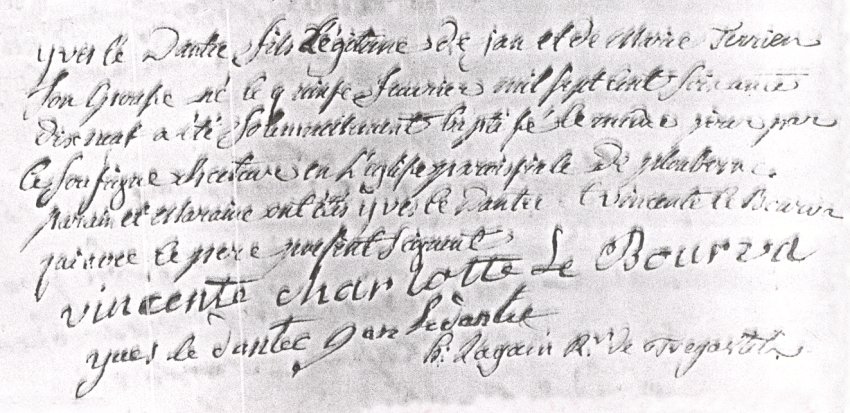 yves le Dantec fils Légitime de jan et de Marie Perrien
son Epouse né le quinse feuvrier mil sept cent soixante
dix neuf a été solennellement baptisé le même jour par
le soussigné Recteur en L'église paroissiale de
parain et maraine ont étés yves le Dantec et vincente le Bourva
qui avec le pere present signent
vincente charlotte Le Bourva
yves le dantec jan Ledantec
h. Lagain R.r de Tregastel